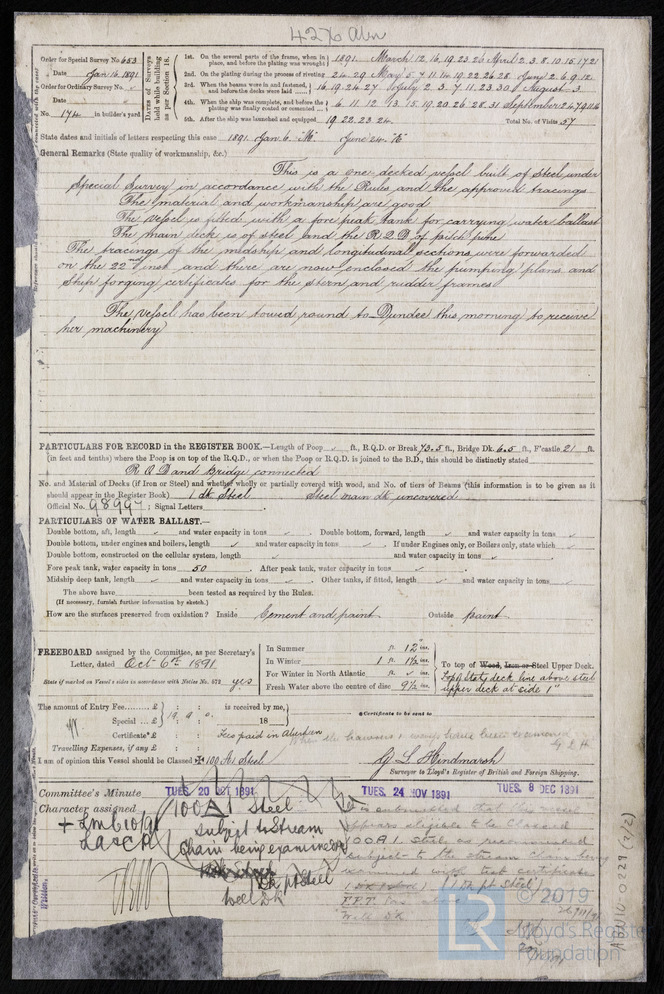 42% Abn
Order for Special Survey No. 653
Date Jan 16 1891
Order for Ordinary Survey No.
Date
No. 174 in builder's yard.
Dates of Surveys held while building as per Section 18.
1st. On the several parts of the frame, when in place, and before the plating was wrought 1891 March 12. 16. 19. 23. 26 April 2. 3. 8. 10. 15. 17. 21
2nd. On the plating during the process of riveting 24. 29. May 5. 7. 11. 14. 19. 22. 26. 28 June 2. 6. 9. 12.
3rd. When the beams were in and fastened, and before the decks were laid 16. 19. 24. 27 July 2. 3. 7. 11. 23. 30 August 3.
4th. When the ship was complete, and before the plating was finally coated or cemented 6. 11. 12. 13. 15. 19. 20. 26. 28. 31 September 2. 4. 7. 9. 11. 16
5th. After the ship was launched and equipped 19. 22. 23. 24.
Total No. of Visits 57
State dates and initials of letters respecting this case 1891. Jan 6. M June 24.
General Remarks (State quality of workmanship, &c.)
This is a one decked vessel built of Steel under
Special Survey in accordance with the Rules and the approved tracings
The material and workmanship are good
The vessel is fitted with a fore peak tank for carrying water ballast
The main deck is of steel and the R.Q.D of pitch pine
The tracings of the midship and longitudinal sections were forwarded
on the 22nd inst and there are now enclosed the pumping plans and
Ship forging certificates for the stern and rudder frames
The vessel has been towed round to Dundee this morning to receive
her machinery
PARTICULARS FOR RECORD in the REGISTER BOOK.—Length of Poop ft., R.Q.D. or Break 73.5 ft., Bridge Dk. 6.5 ft., F'castle 21 ft.
(in feet and tenths) where the Poop is on top of the R.Q.D., or when the Poop or R.Q.D. is joined to the B.D., this should be distinctly stated
R Q D and Bridge connected
No. and Material of Decks (if Iron or Steel) and whether wholly or partially covered with wood, and No. of tiers of Beams (this information is to be given as it
should appear in the Register Book) 1 dk Steel Steel main dk uncovered
Official No. 98997; Signal Letters
PARTICULARS OF WATER BALLAST.—
Double bottom, aft, length and water capacity in tons Double bottom, forward, length and water capacity in tons
Double bottom, under engines and boilers, length and water capacity in tons If under Engines only, or Boilers only, state which
Double bottom, constructed on the cellular system, length and water capacity in tons
Fore peak tank, water capacity in tons 50 After peak tank, water capacity in tons
Midship deep tank, length and water capacity in tons Other tanks, if fitted, length and water capacity in tons
The above have been tested as required by the Rules.
(If necessary, furnish further information by sketch.)
How are the surfaces preserved from oxidation? Inside Cement and paint Outside paint
FREEBOARD assigned by the Committee, as per Secretary's
Letter, dated Oct 6th 1891
State if marked on Vessel's sides in accordance with Notice No. 672 yes
In Summer ft. 12 ins.
In Winter 1 ft. 1½ ins.
For Winter in North Atlantic ft. ins.
Fresh Water above the centre of disc 9½ ins.
To top of Wood, Iron or Steel Upper Deck.
Top of Staty deck line above steel
upper deck at side 1"
The amount of Entry Fee £ is received by me,
Special £ 19. 9. 0. 18
Certificate £ Fees paid in Aberdeen
Travelling Expenses, if any £
Certificate to be sent to
I am of opinion this Vessel should be Classed 100 A1 Steel
G L Hindmarsh
Surveyor to Lloyd's Register of British and Foreign Shipping.
Committee's Minute TUES. 20 OCT 1891 TUES. 24 NOV 1891 TUES. 8 DEC 1891
Character assigned 100A1 Steel
+ Lmc 10/91
Subject to Stream
Chain being examined
1 Dk pt Steel
Well Dk
It is submitted that this vessel
appears eligible to be Classed
100A1 Steel as recommended
subject to the stream chain being
examined with test certificate
(1 Dk pt Steel)
Well Dk
© 2019
LR
Lloyd's Register
Foundation